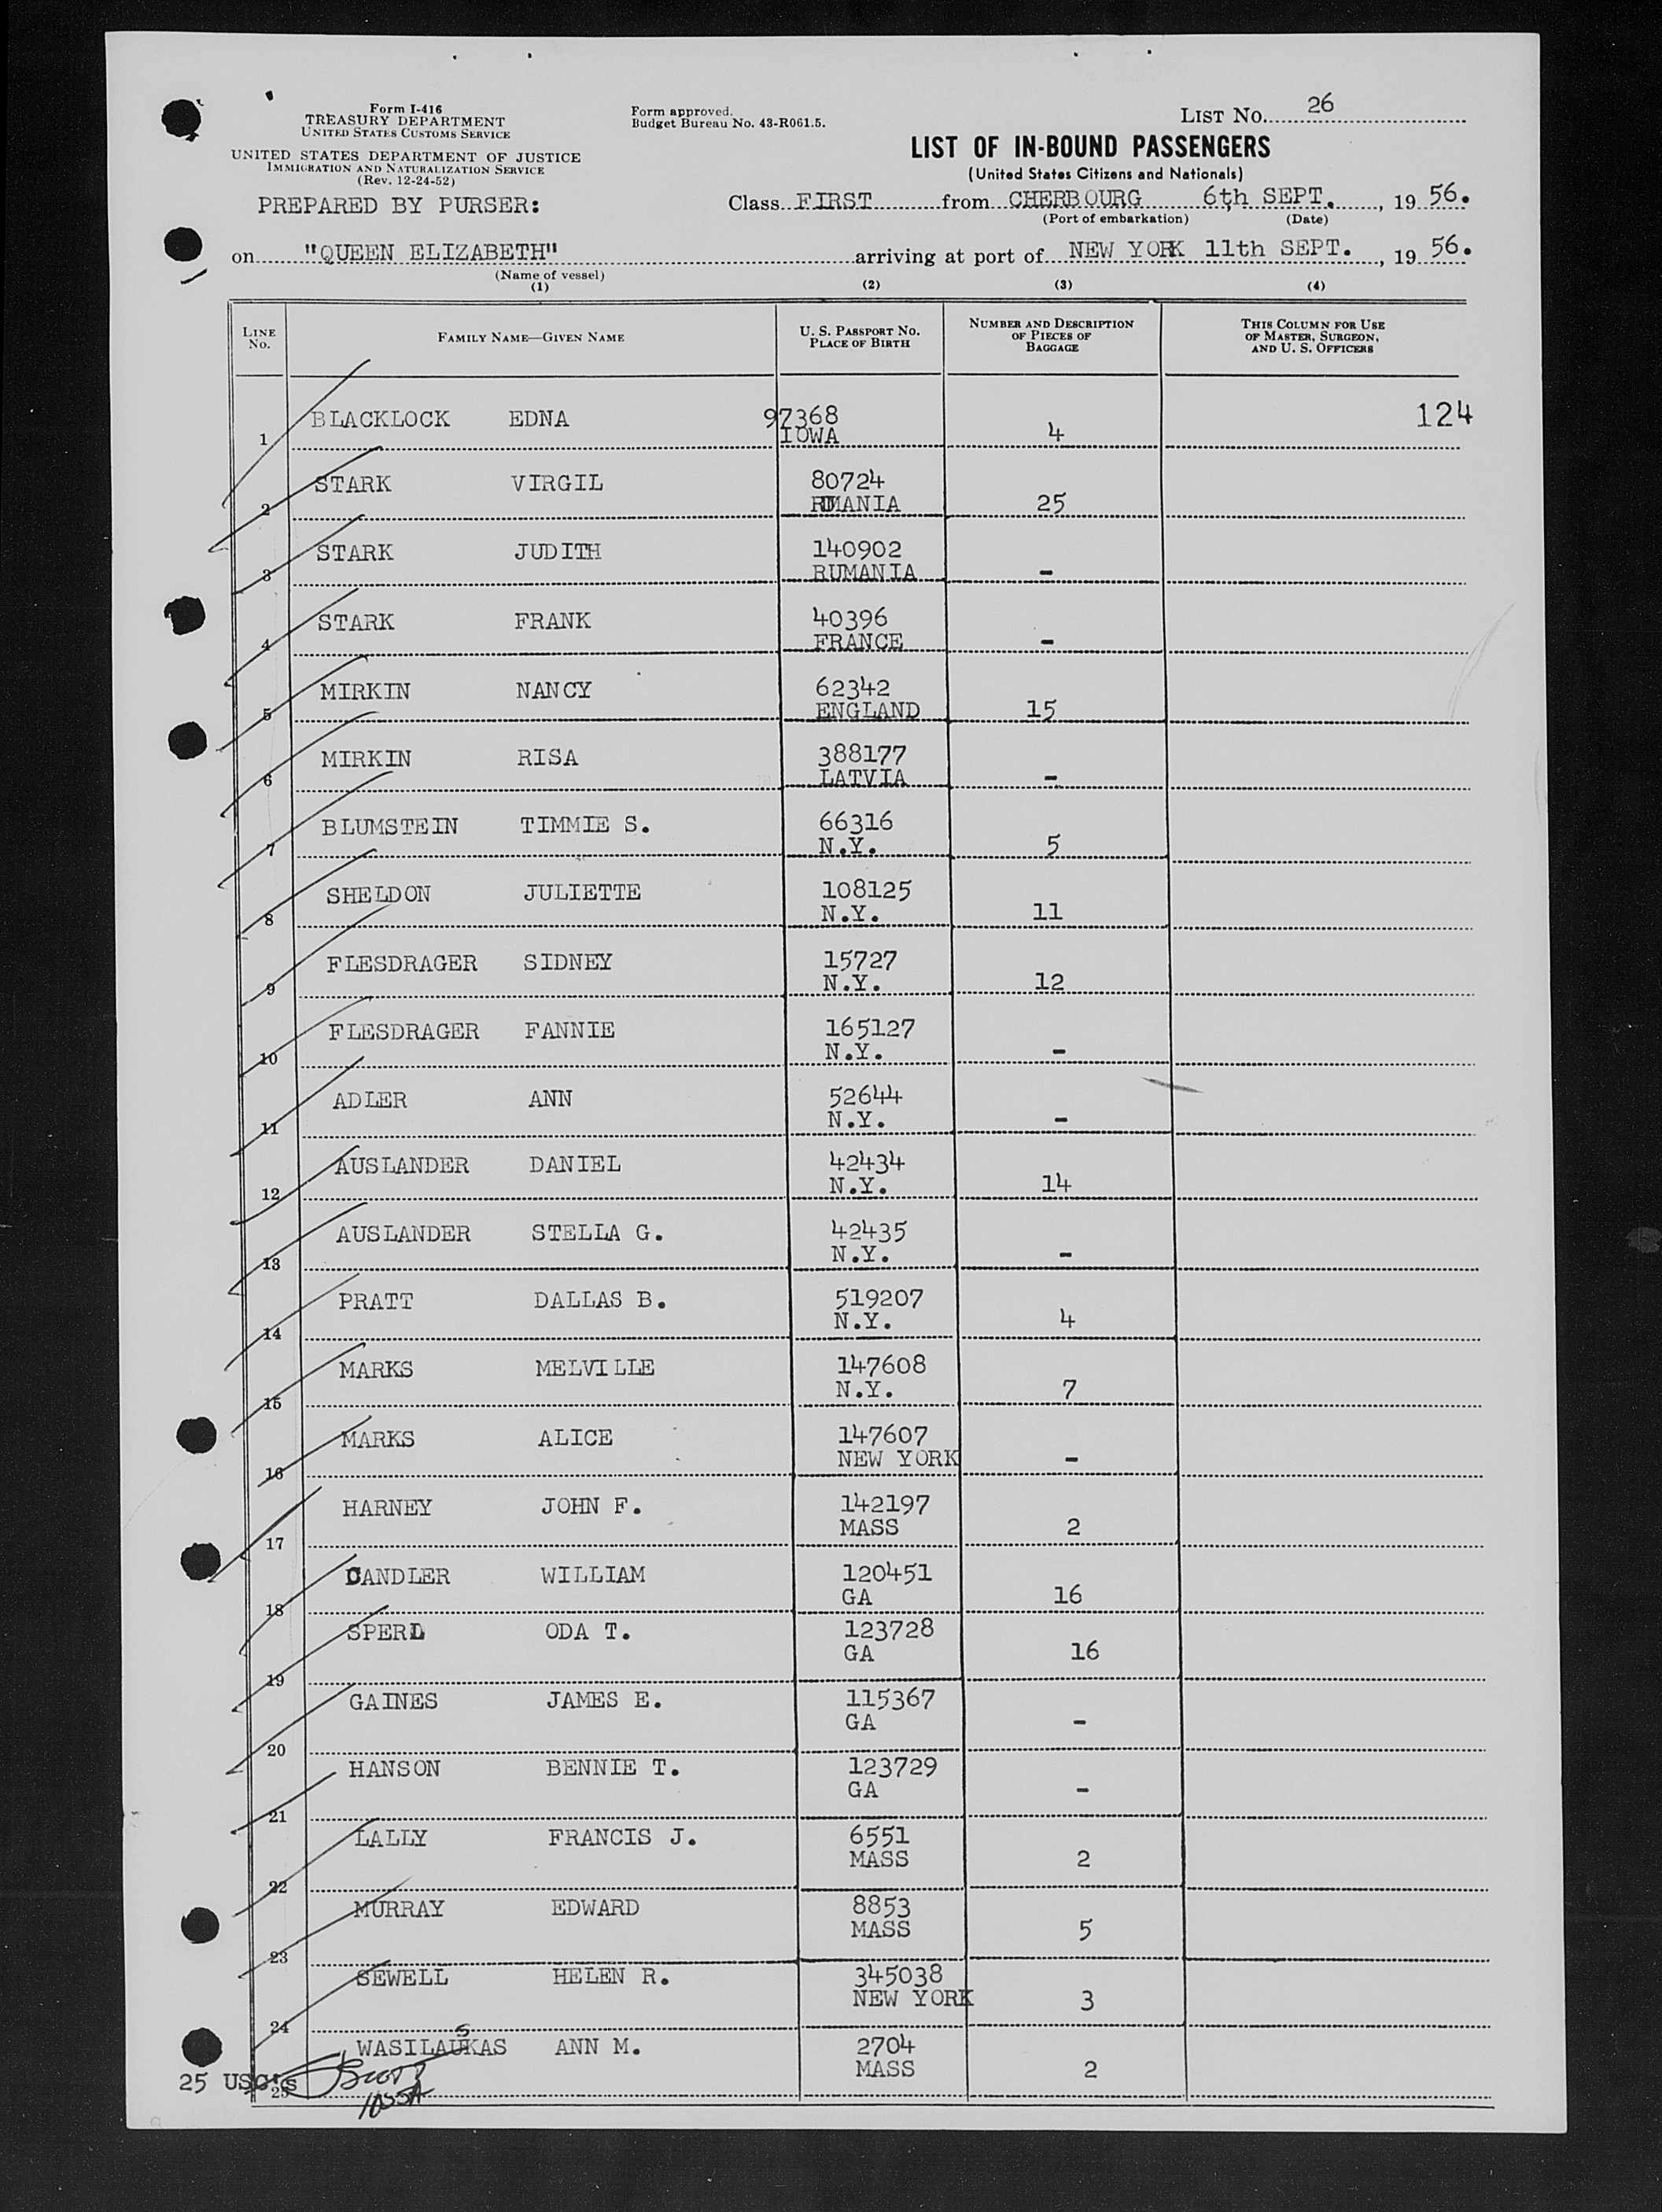 Form I-416
TREASURY DEPARTMENT
UNITED STATES CUSTOMS SERVICE
UNITED STATES DEPARTMENT OF JUSTICE
IMMIGRATION AND NATURALIZATION SERVICE
(Rev. 12-24-52)
PREPARED BY PURSER:
Form approved.
Budget Bureau No. 43-R061.5.
LIST No. 26
LIST OF IN-BOUND PASSENGERS
(United States Citizens and Nationals)
Class FIRST from CHERBOURG 6th SEPT., 19 56.
(Port of embarkation) (Date)
on "QUEEN ELIZABETH" arriving at port of NEW YORK 11th SEPT., 19 56.
(Name of vessel)
(1) (2) (3) (4)
LINE No. FAMILY NAME—GIVEN NAME U. S. PASSPORT No. PLACE OF BIRTH NUMBER AND DESCRIPTION OF PIECES OF BAGGAGE THIS COLUMN FOR USE OF MASTER, SURGEON, AND U. S. OFFICERS
BLACKLOCK EDNA 97368 124
1 IOWA 4
STARK VIRGIL 80724
2 RUMANIA 25
STARK JUDITH 140902
3 RUMANIA -
STARK FRANK 40396
4 FRANCE -
MIRKIN NANCY 62342
5 ENGLAND 15
MIRKIN RISA 388177
6 LATVIA -
BLUMSTEIN TIMMIE S. 66316
7 N.Y. 5
SHELDON JULIETTE 108125
8 N.Y. 11
FLESDRAGER SIDNEY 15727
9 N.Y. 12
FLESDRAGER FANNIE 165127
10 N.Y. -
ADLER ANN 52644
11 N.Y. -
AUSLANDER DANIEL 42434
12 N.Y. 14
AUSLANDER STELLA G. 42435
13 N.Y. -
PRATT DALLAS B. 519207
14 N.Y. 4
MARKS MELVILLE 147608
15 N.Y. 7
MARKS ALICE 147607
16 NEW YORK -
HARNEY JOHN F. 142197
17 MASS 2
CANDLER WILLIAM 120451
18 GA 16
SPERL ODA T. 123728
19 GA 16
GAINES JAMES E. 115367
20 GA -
HANSON BENNIE T. 123729
21 GA -
LALLY FRANCIS J. 6551
22 MASS 2
MURRAY EDWARD 8853
23 MASS 5
SEWELL HELEN R. 345038
24 NEW YORK 3
WASILAUSKAS ANN M. 2704
25 MASS 2
25 USC's